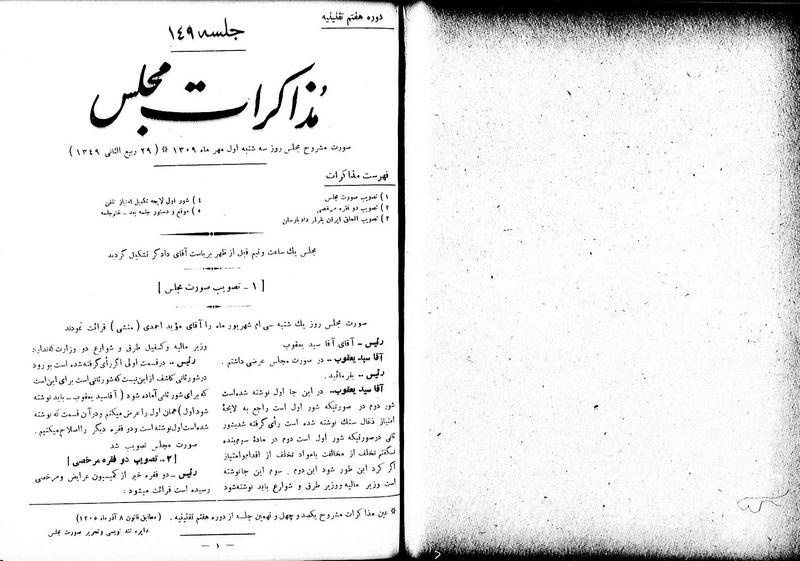 دوره هفتم تقنینیه
جلسه ۱۴۹
مذاکرات مجلس
صورت مشروح مجلس روز سه شنبه اول مهر ماه ۱۳۰۹ * ( ۲۹ ربیع الثانی ۱۳۴۹ )
فهرست مذاکرات
۱ ) تصویب صورت مجلس
۲ ) تصویب دو فقره مرخصی
۳ ) تصویب الحاق ایران بقرار داد پارسلن
۴ ) شور اول لایحه تکمیل امتیاز تلفن
۵ ) موقع و دستور جلسه بعد - ختم جلسه
مجلس یک ساعت و نیم قبل از ظهر بریاست آقای دادگر تشکیل گردید
[ ۱ - تصویب صورت مجلس ]
صورت مجلس روز یک شنبه سی ام شهریور ماه را آقای مؤید احمدی ( منشی ) قرائت نمودند
رئیس - آقای آقا سید یعقوب
آقا سید یعقوب - در صورت مجلس عرضی داشتم .
رئیس - بفرمائید .
آقا سید یعقوب - در این جا اول نوشته شده است
شور دوم در صورتیکه شور اول است راجع به لایحهٔ
امتیاز ذغال سنگ نوشته شده است رأی گرفته شد بشور
ثانی در صورتیکه شور اول است دوم در مادهٔ سوم بنده
نگفتم تخلف از مخالفت بامواد تخلف از اقدام و امتیاز
اگر کرد این طور شود این دوم . سوم این جا نوشته
است وزیر مالیه و وزیر طرق و شوارع باید نوشته شود
وزیر مالیه و کفیل طرق و شوارع دو وزارت که ندارد
رئیس - در قسمت اولی اگر رأی گرفته شده است بورود
در شور ثانی کاشف از این نیست که شور ثانی است برای این است
که برای شور ثانی آماده شود ( آقا سید یعقوب - باید نوشته
شود اول ) همان اول را عرض میکنم و در آن قسمت که نوشته
شده است اول نوشته است و دو فقره دیگر را اصلاح میکنیم .
صورت مجلس تصویب شد
[ ۲ - تصویب دو فقره مرخصی ]
رئیس - دو فقره خبر از کمیسیون عرایض و مرخصی
رسیده است قرائت میشود :
* عین مذاکرات مشروح یکصد و چهل و نهمین جلسه از دوره هفتم تقنینیه . ( مطابق قانون ۸ آذر ماه ۱۳۰۵ )
دایره تند نویسی و تحریر صورت مجلس
— ۱ —